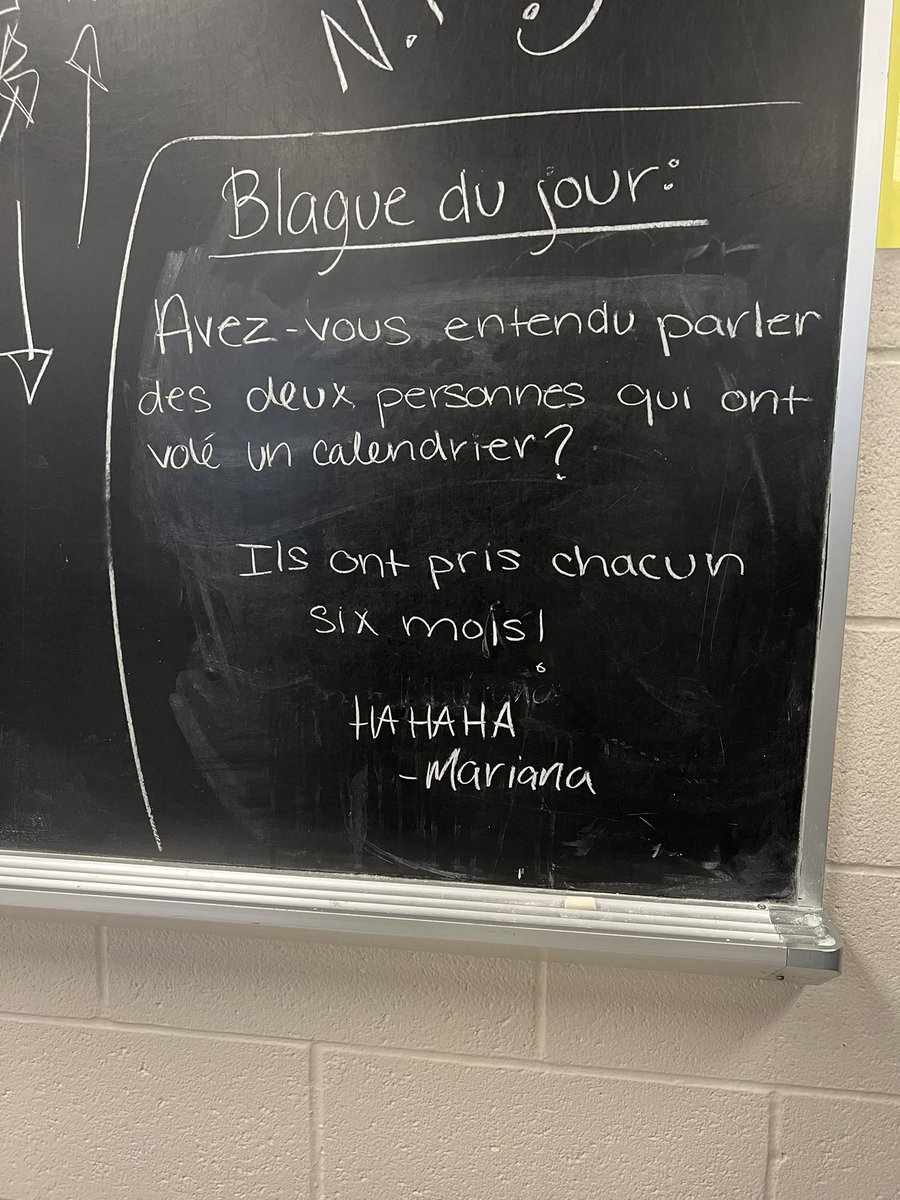 Blague du jour:
Avez-vous entendu parler
des deux personnes qui ont
volé un calendrier?
Ils ont pris chacun
six mois!
HAHAHA
-Mariana